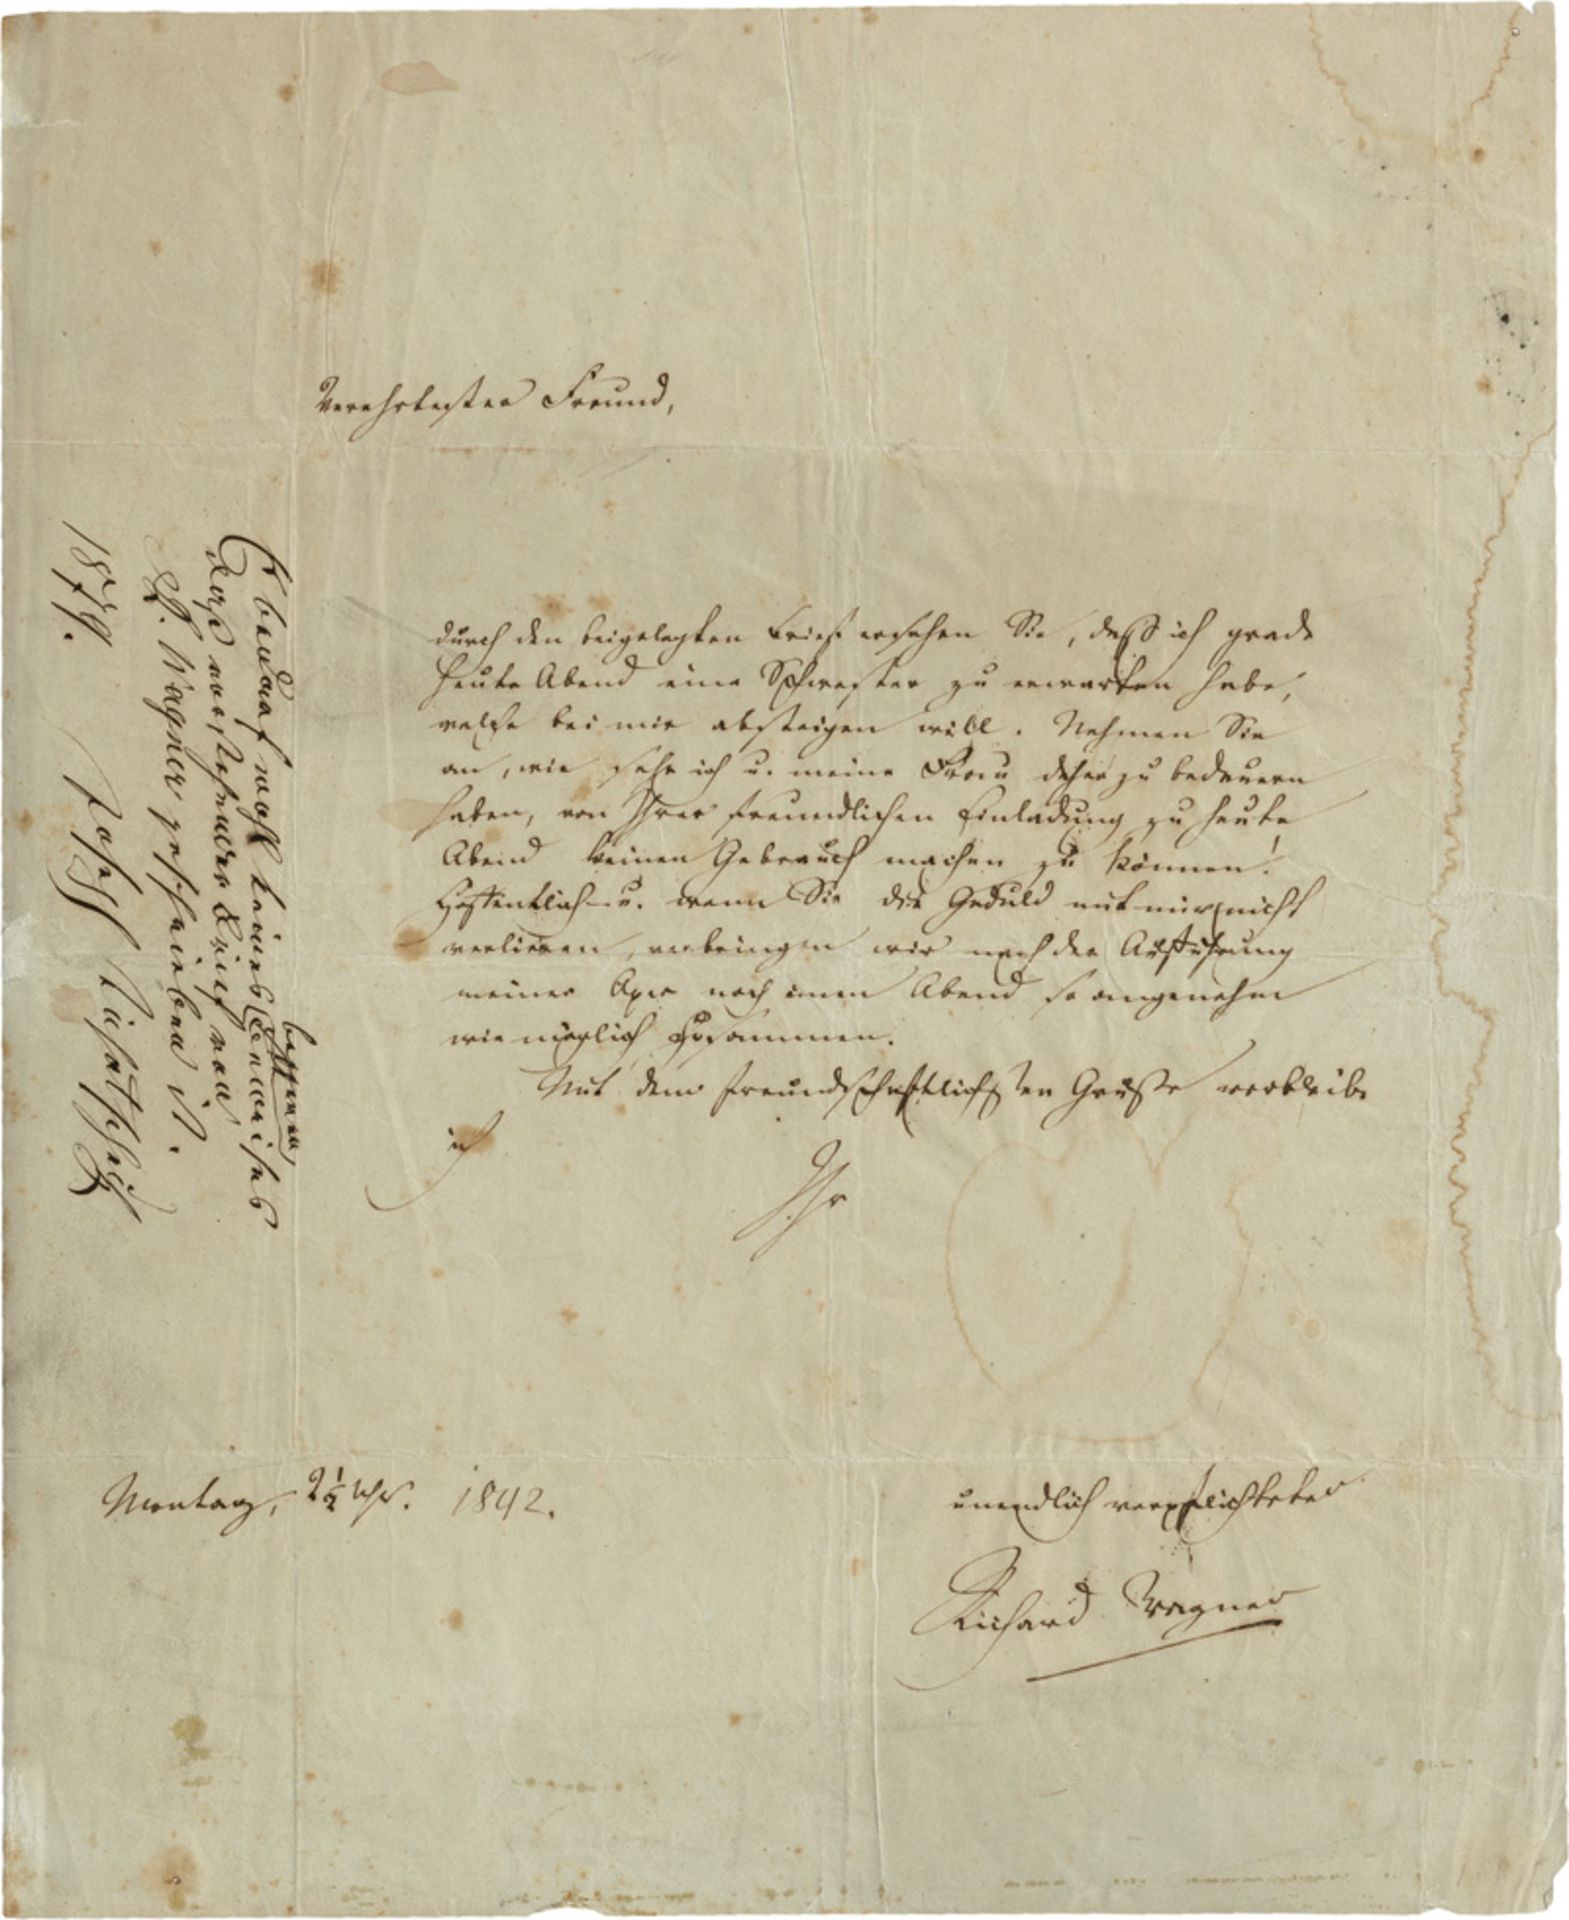 Verehrtester Freund,
durch den beigelegten Brief ersehen Sie, daß ich grade
heute Abend eine Schwester zu erwarten habe,
welche bei mir absteigen will. Nehmen Sie
an, wie sehr ich u. meine Frau daher zu bedauern
haben, von Ihrer freundlichen Einladung zu heute
Abend keinen Gebrauch machen zu können!
Hoffentlich – u. wenn Sie die Geduld mit mir nicht
verlieren, verbringen wir nach der Aufführung
meiner Oper noch einen Abend so angenehm
wie möglich zusammen.
Mit dem freundschaftlichsten Gruße verbleibe
ich
Ihr
unendlich verpflichteter
Richard Wagner
Montag, 2½ Uhr. 1842.
Es bedarf wohl keines besseren Beweises
daß vorstehender Brief von
R. Wagner geschrieben ist.
Joseph Tichatscheck
1879.